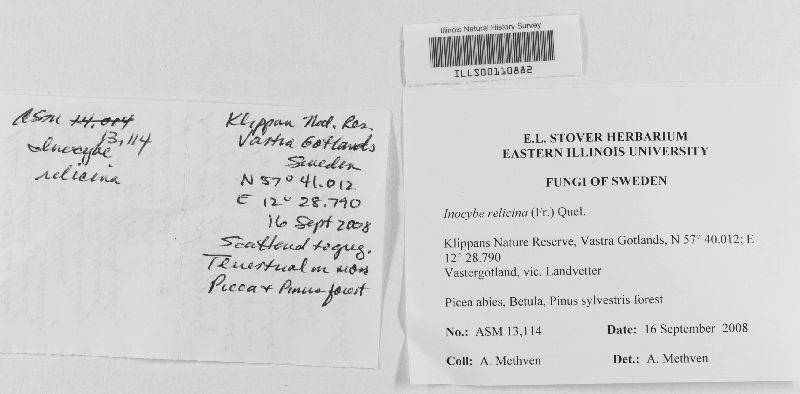 Illinois Natural History Survey
ILLS00110882
ASM 14,014
13,114
Inocybe
relicina
Klippan Nat. Res.
Vastra Gotlands
Sweden
N 57° 41.012
E 12° 28.790
16 Sept 2008
Scattered to greg.
Terrestrial in moss
Picea + Pinus forest
E.L. STOVER HERBARIUM
EASTERN ILLINOIS UNIVERSITY
FUNGI OF SWEDEN
Inocybe relicina (Fr.) Quel.
Klippans Nature Reserve, Vastra Gotlands, N 57° 40.012; E
12° 28.790
Vastergotland, vic. Landvetter
Picea abies, Betula, Pinus sylvestris forest
No.: ASM 13,114 Date: 16 September 2008
Coll: A. Methven Det.: A. Methven